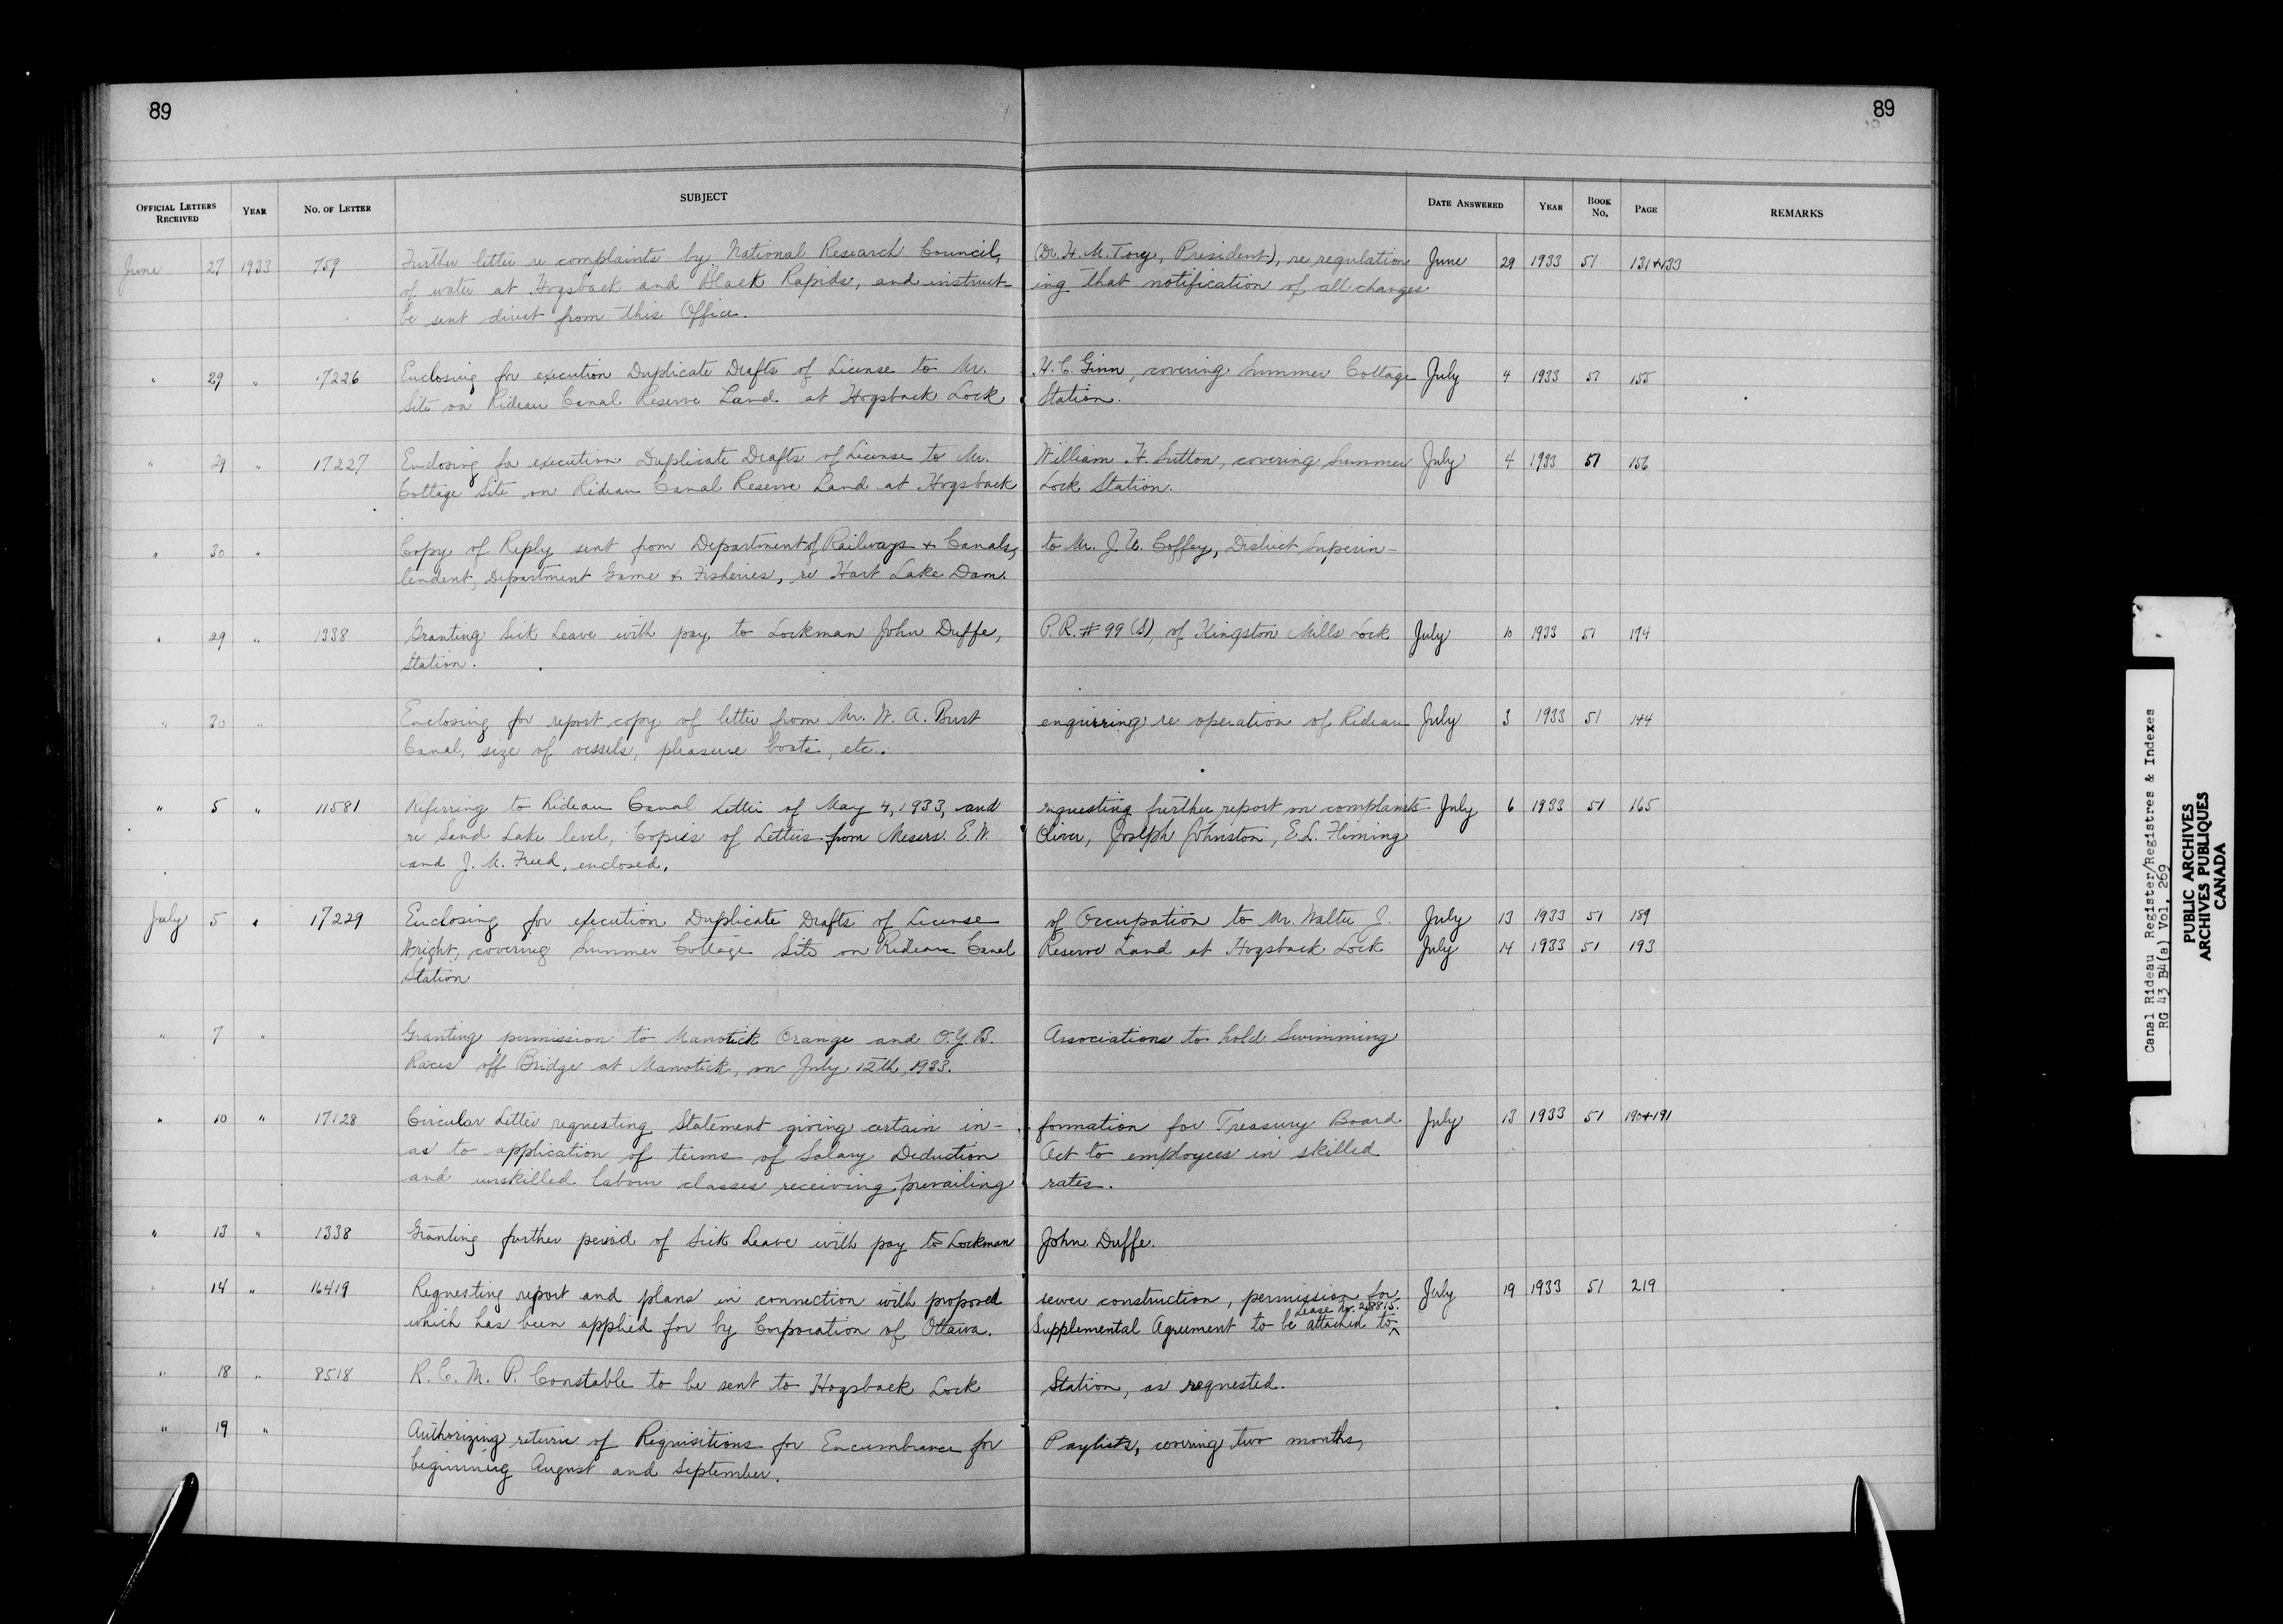 89
89
OFFICIAL LETTERS RECEIVED YEAR NO. OF LETTER SUBJECT DATE ANSWERED YEAR BOOK NO. PAGE REMARKS
June 27 1933 759 Further letter re complaints by National Research Council, (Dr. H. M. Tory, President), re regulation June 29 1933 51 131+133
of water at Hogsback and Black Rapids, and instruct- ing that notification of all changes
be sent direct from this Office.
" 29 " 17226 Enclosing for execution Duplicate Drafts of License to Mr. H. C. Ginn, covering Summer Cottage July 4 1933 51 155
Site on Rideau Canal Reserve Land at Hogsback Lock Station.
" 29 " 17227 Enclosing for execution Duplicate Drafts of License to Mr. William H. Sutton, covering Summer July 4 1933 51 156
Cottage Site on Rideau Canal Reserve Land at Hogsback Lock Station.
" 30 " Copy of Reply sent from Department of Railways & Canals, to Mr. J. Coffey, District Superin-
tendent, Department Game & Fisheries, re Hart Lake Dam.
" 29 " 1338 Granting Sick Leave with pay to Lockman John Duffe, P.R. # 99 (S), of Kingston Mills Lock July 10 1933 51 174
Station.
" 30 " Enclosing for report copy of letter from Mr. W. A. Burt enquiring re operation of Rideau July 3 1933 51 144
Canal, size of vessels, pleasure boats, etc.
" 5 " 11581 Referring to Rideau Canal Letter of May 4, 1933, and requesting further report on complaints July 6 1933 51 165
re Sand Lake level, Copies of Letters from Messrs. E. W. Oliver, Joseph Johnston, E. L. Fleming
and J. M. Freed, enclosed.
July 5 " 17229 Enclosing for execution Duplicate Drafts of License of Occupation to Mr. Walter J. July 13 1933 51 189
Wright, covering Summer Cottage Site on Rideau Canal Reserve Land at Hogsback Lock July 14 1933 51 193
Station
" 7 " Granting permission to Manotick Orange and O.Y.B. Associations to hold Swimming
Races off Bridge at Manotick, on July 12th, 1933.
" 10 " 17128 Circular Letter requesting Statement giving certain in- formation for Treasury Board July 13 1933 51 190+191
as to application of terms of Salary Deduction Act to employees in skilled
and unskilled labour classes receiving prevailing rates.
" 13 " 1338 Granting further period of Sick Leave with pay to Lockman John Duffe.
14 " 16419 Requesting report and plans in connection with proposed sewer construction, permission for July 19 1933 51 219
Lease No. 28815.
which has been applied for by Corporation of Ottawa. Supplemental Agreement to be attached to
" 18 " 8518 R. C. M. P. Constable to be sent to Hogsback Lock Station, as requested.
" 19 " Authorizing return of Requisitions for Encumbrance for Paylists, covering two months,
beginning August and September.
Canal Rideau Register/Registres & Indexes
RG 43 B4(a) Vol. 269
PUBLIC ARCHIVES
ARCHIVES PUBLIQUES
CANADA